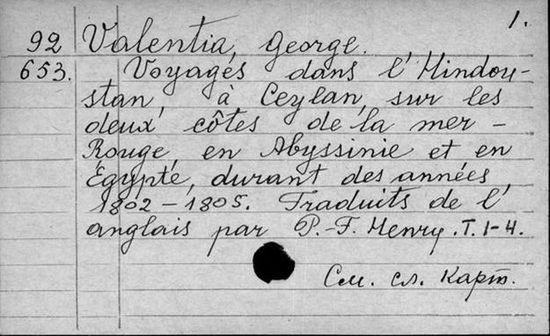 1.
92 Valentia, George.
653. Voyages dans l'Hindou-
stan, à Ceylan, sur les
deux côtes de la mer-
Rouge, en Abyssinie et en
Egypte, durant des années
1802-1805. Traduits de l'
anglais par P.-F. Henry. T. 1-4.
См. сл. карт.